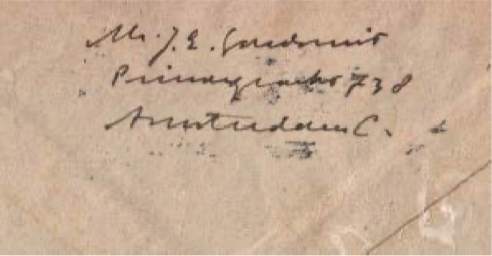 Mr. J. E. Goudsmit
Prinsengracht 738
Amsterdam C.